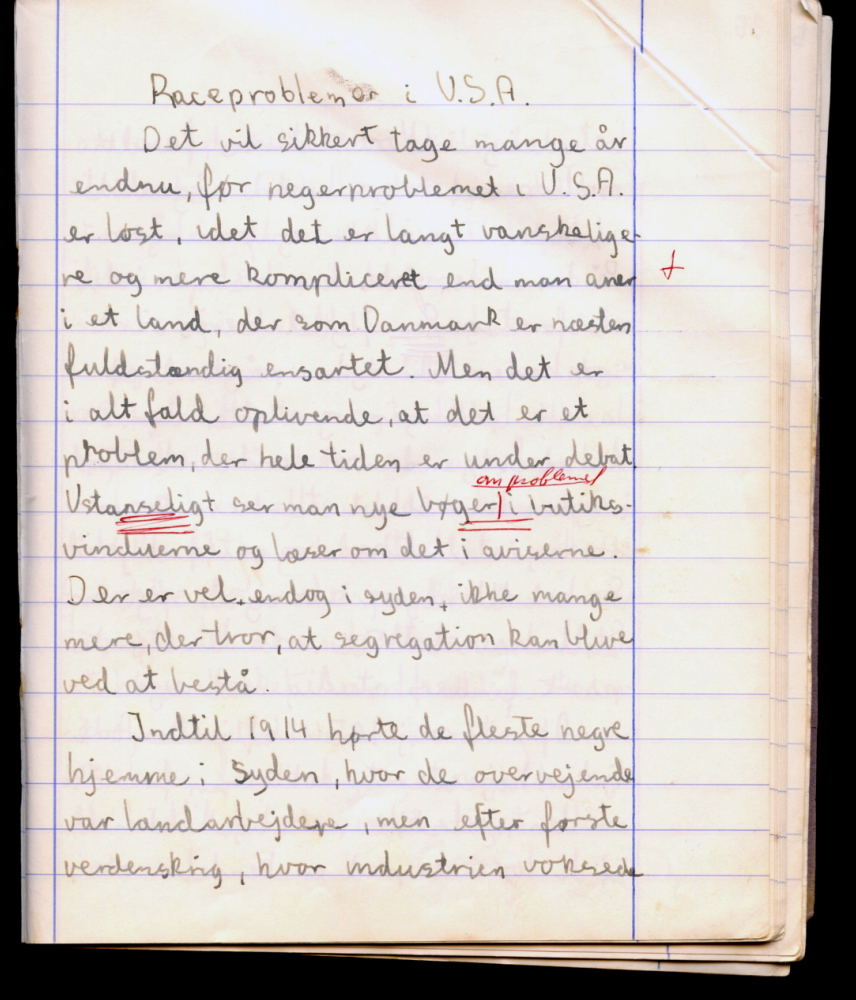 Raceproblemer i U.S.A.
Det vil sikkert tage mange år
endnu, før negerproblemet i U.S.A.
er løst, idet det er langt vanskelige-
re og mere kompliceret end man aner
i et land, der som Danmark er næsten
fuldstændig ensartet. Men det er
i alt fald oplivende, at det er et
problem, der hele tiden er under debat.
om problemet
Ustanseligt ser man nye bøger i butiks-
vinduerne og læser om det i aviserne.
Der er vel, endog i syden, ikke mange
mere, der tror, at segregation kan blive
ved at bestå.
Indtil 1914 hørte de fleste negre
hjemme i Syden, hvor de overvejende
var landarbejdere, men efter første
verdenskrig, hvor industrien voksede